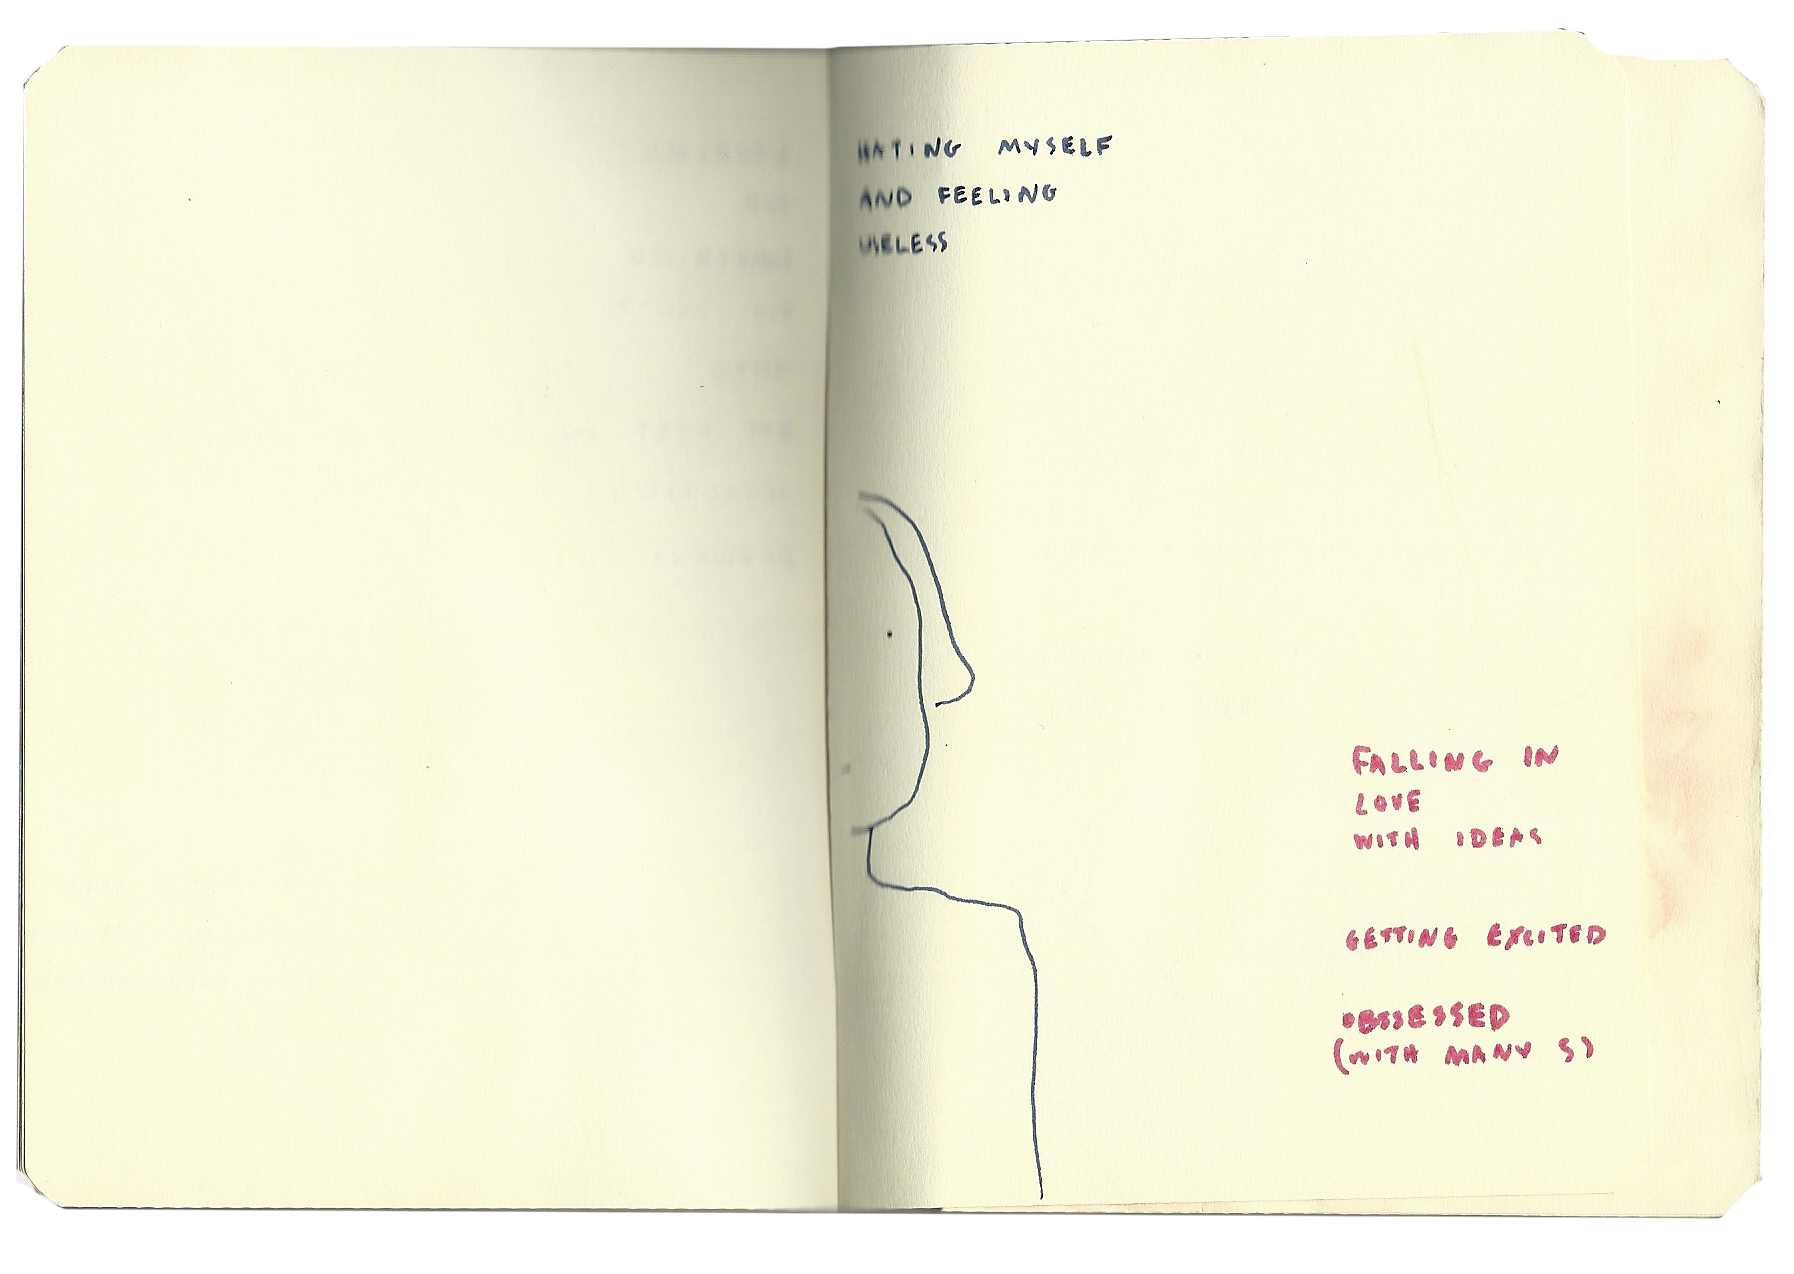 HATING MYSELF
AND FEELING
USELESS
FALLING IN
LOVE
WITH IDEAS
GETTING EXCITED
OBSSESSED
(WITH MANY S)